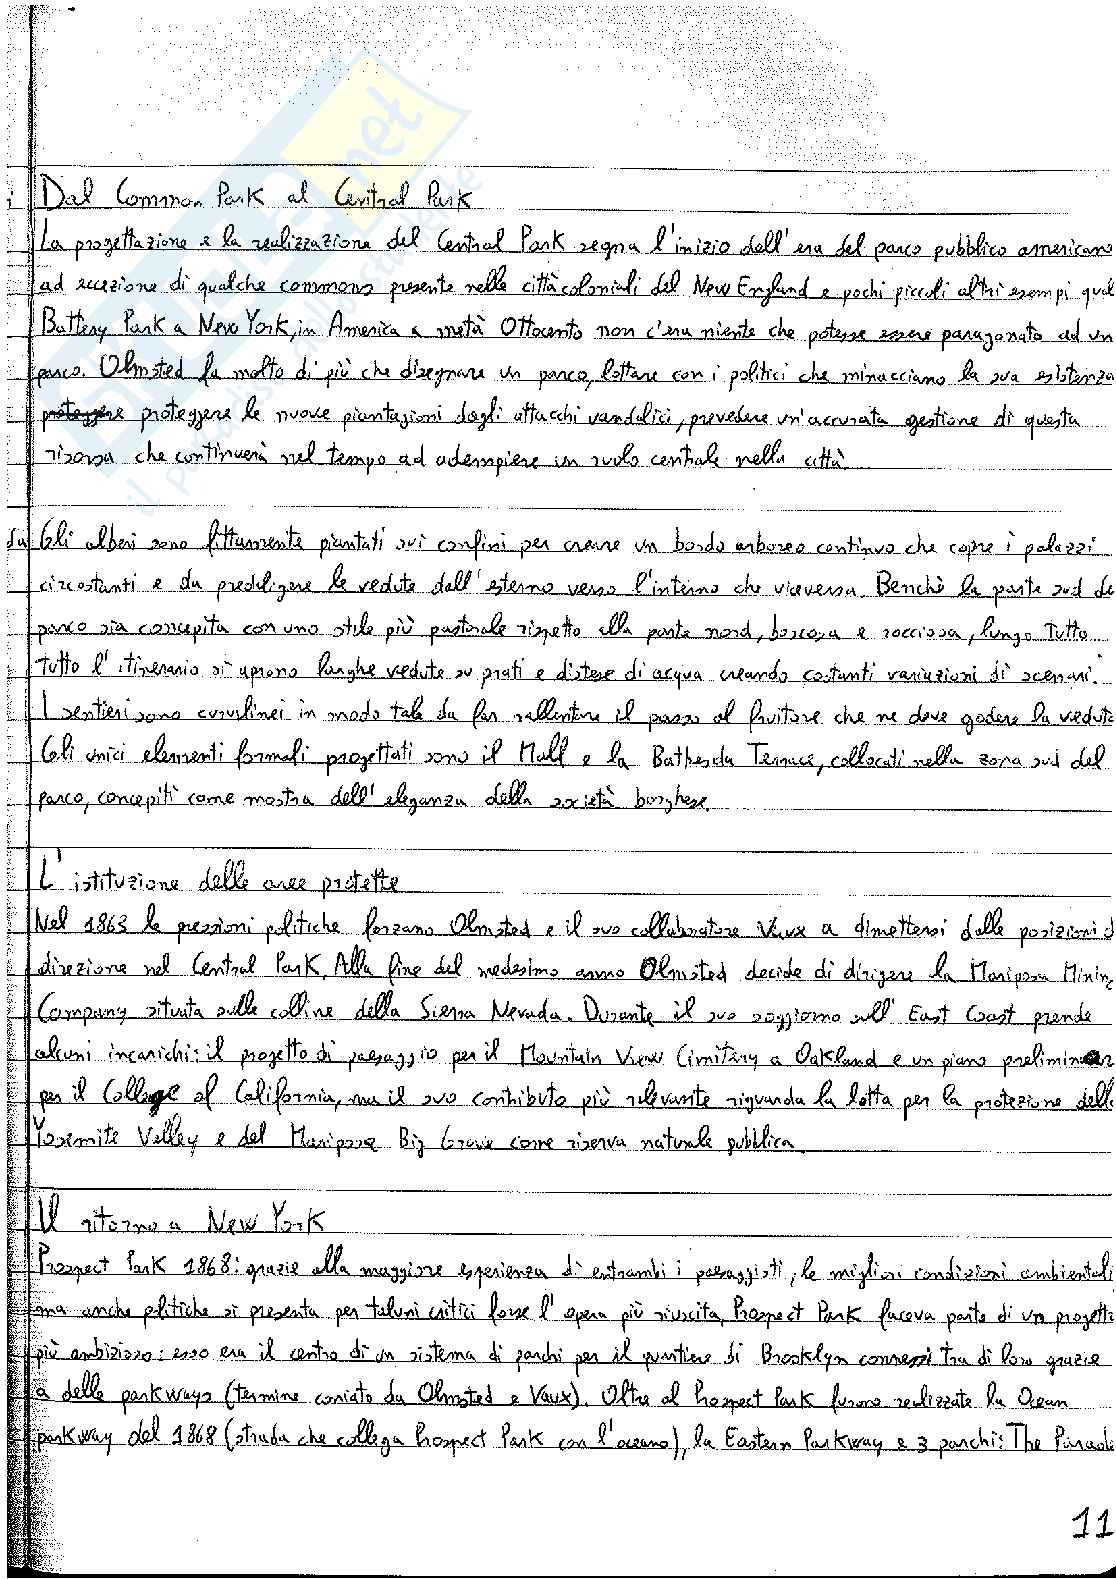 Dal Common Park al Central Park
La progettazione e la realizzazione del Central Park segna l'inizio dell'era del parco pubblico americano
ad eccezione di qualche commons presente nelle città coloniali del New England e pochi piccoli altri esempi qual
Battery Park a New York, in America a metà Ottocento non c'era niente che potesse essere paragonato ad un
parco. Olmsted fa molto di più che disegnare un parco, lottare con i politici che minacciano la sua esistenza
proteggere proteggere le nuove piantagioni dagli attacchi vandalici, prevedere un'accurata gestione di questa
risorsa che continuerà nel tempo ad adempiere un ruolo centrale nella città.
Gli alberi sono fittamente piantati sui confini per creare un bordo arboreo continuo che copre i palazzi
circostanti e da prediligere le vedute dall'esterno verso l'interno che viceversa. Benchè la parte sud de
parco sia concepita con uno stile più pastorale rispetto alla parte nord, boscosa e rocciosa, lungo tutto
tutto l'itinerario si aprono larghe vedute su prati e distese di acqua creando costanti variazioni di scenari.
I sentieri sono curvilinei in modo tale da far rallentare il passo al fruitore che ne deve godere la veduta
Gli unici elementi formali progettati sono il Mall e la Bathesda Terrace, collocati nella zona sud del
parco, concepiti come mostra dell'eleganza della società borghese.
L'istituzione delle aree protette
Nel 1863 le pressioni politiche forzano Olmsted e il suo collaboratore Vaux a dimettersi dalle posizioni d
direzione nel Central Park. Alla fine del medesimo anno Olmsted decide di dirigere la Mariposa Mining
Company situata sulle colline della Sierra Nevada. Durante il suo soggiorno sull'East Coast prende
alcuni incarichi: il progetto di paesaggio per il Mountain View Cimitery a Oakland e un piano preliminar
per il College of California, ma il suo contributo più rilevante riguarda la lotta per la protezione dell
Yosemite Valley e del Mariposa Big Grove come riserva naturale pubblica.
Il ritorno a New York
Prospect Park 1868: grazie alla maggiore esperienza di entrambi i paesaggisti, le migliori condizioni ambientali
ma anche politiche si presenta per taluni critici forse l'opera più riuscita, Prospect Park faceva parte di un progetto
più ambizioso: esso era il centro di un sistema di parchi per il quartiere di Brooklyn connessi tra di loro grazie
a delle parkways (termine coniato da Olmsted e Vaux). Oltre al Prospect Park furono realizzate la Ocean
parkway del 1868 (strada che collega Prospect Park con l'oceano), la Eastern Parkway e 3 parchi: The Parade
11